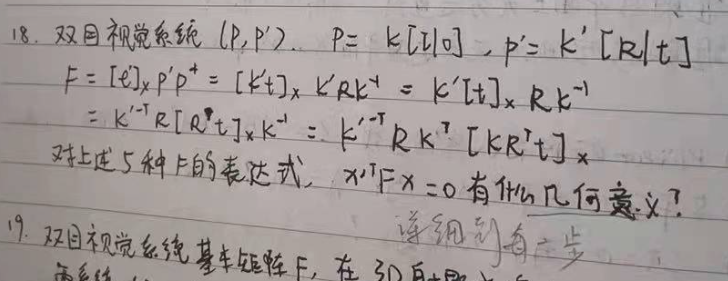 18. 双目视觉系统 (P, P'). P = K[I|0], P' = K'[R|t]
F = [e']ₓP'P⁺ = [K't]ₓ K'RK⁻¹ = K'[t]ₓ RK⁻¹
= K'⁻ᵀR[Rᵀt]ₓK⁻¹ = K'⁻ᵀRKᵀ[KRᵀt]ₓ
对上述5种F的表达式, x'ᵀFx=0有什么几何意义?
详细到每一步
19. 双目视觉系统基本矩阵F, 在3D